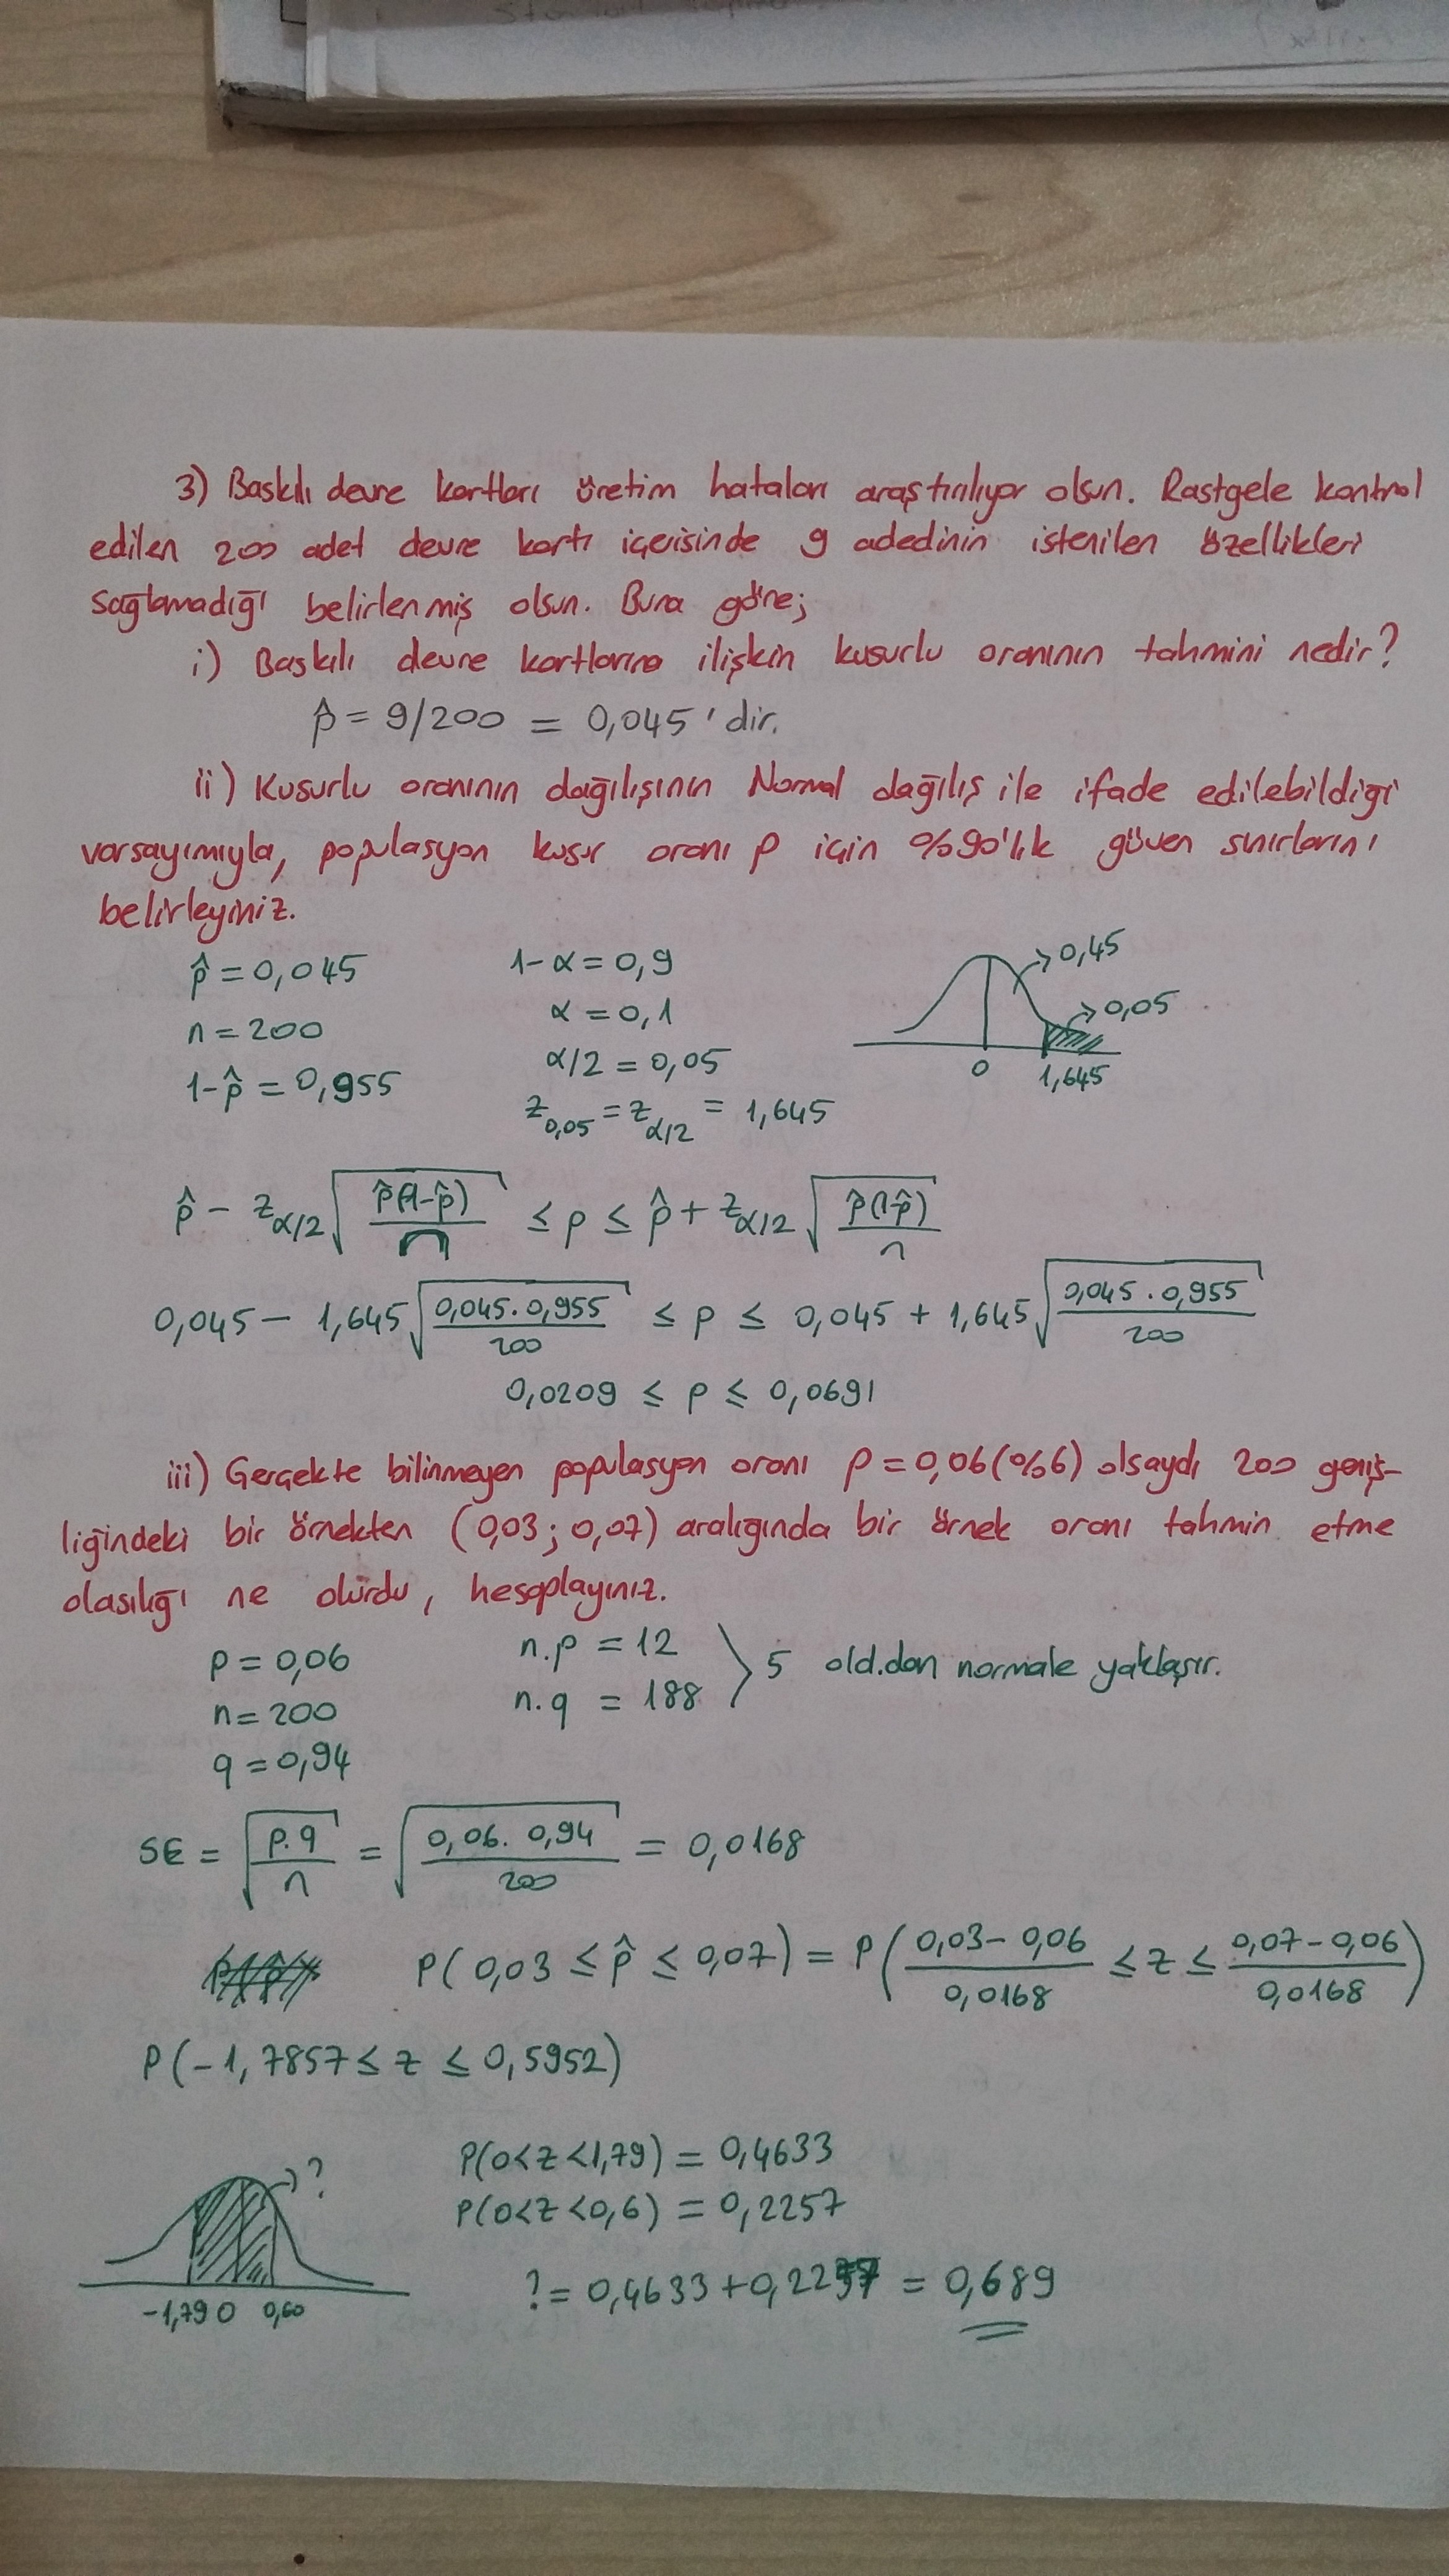 3) Baskılı devre kartları üretim hataları araştırılıyor olsun. Rastgele kontrol
edilen 200 adet devre kartı içerisinde 9 adedinin istenilen özellikleri
sağlamadığı belirlenmiş olsun. Buna göre;
i) Baskılı devre kartlarına ilişkin kusurlu oranının tahmini nedir?
p̂ = 9/200 = 0,045'dir.
ii) Kusurlu oranının dağılışının Normal dağılış ile ifade edilebildiği
varsayımıyla, populasyon kusur oranı p için %90'lık güven sınırlarını
belirleyiniz.
p̂ = 0,045 1-α = 0,9 0,45
n = 200 α = 0,1 0,05
1-p̂ = 0,955 α/2 = 0,05 0 1,645
z0,05 = zα/2 = 1,645
p̂ - zα/2 √(p̂(1-p̂)/n) ≤ p ≤ p̂ + zα/2 √(p̂(1-p̂)/n)
0,045 - 1,645 √(0,045.0,955/200) ≤ p ≤ 0,045 + 1,645 √(0,045.0,955/200)
0,0209 ≤ p ≤ 0,0691
iii) Gerçekte bilinmeyen populasyon oranı p = 0,06 (%6) olsaydı 200 geniş-
liğindeki bir örnekten (0,03; 0,07) aralığında bir örnek oranı tahmin etme
olasılığı ne olurdu, hesaplayınız.
p = 0,06 n.p = 12
n = 200 n.q = 188 > 5 old.dan normale yaklaşır.
q = 0,94
SE = √(p.q/n) = √(0,06.0,94/200) = 0,0168
P(0,03 ≤ p̂ ≤ 0,07) = P((0,03-0,06)/0,0168 ≤ z ≤ (0,07-0,06)/0,0168)
P(-1,7857 ≤ z ≤ 0,5952)
P(0<z<1,79) = 0,4633
? P(0<z<0,6) = 0,2257
? = 0,4633+0,2257 = 0,689
-1,79 0 0,60